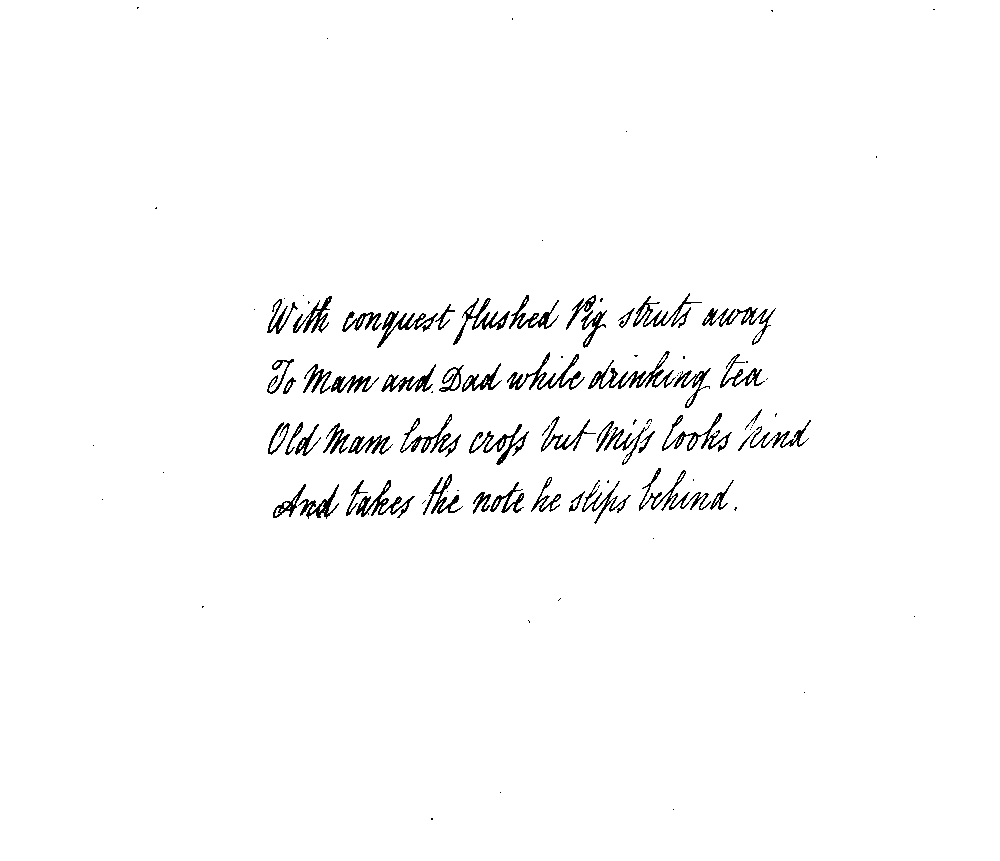 With conquest flushed Pig struts away
To Mam and Dad while drinking tea
Old Mam looks croſs but Miſs looks kind
And takes the note he slips behind.